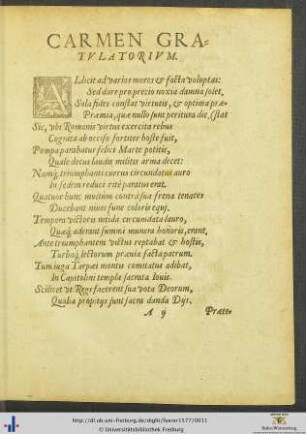 CARMEN GRA-
TVLATORIVM.
ALlicit ad varios mores & facta voluptas:
Sed dare pro precio noxia damna solet,
Sola fides constat virtutis, & optima præ-
Præmia, quæ nullo sunt peritura die, (stat
Sic, vbi Romanis virtus exercita rebus
Cognita ab occiso fortiter hoste fuit,
Pompa parabatur felici Marte potitis,
Quale decus laudis militis arma decet:
Namq́; triumphantis currus circumdatus auro
In sedem reduci ritè paratus erat.
Quatuor hunc mucrum contrà sua frena tenaces
Ducebant niuei fune coloris equi.
Tempora victoris nitida circumdata lauro,
Quæq́; aderant summi munera honoris, erant,
Ante triumphantem victus reptabat & hostis,
Turbaq́; lectorum præuia facta patrum.
Tum iuga Tarpeï montis comitatus adibat,
In Capitolini templa sacrata Iouis.
Scilicet vt Regi facerent sua vota Deorum,
Qualia propitijs sunt sacra danda Dijs.
A ij
Præte-
http://dl.ub.uni-freiburg.de/diglit/faerer1577/0011
© Universitätsbibliothek Freiburg
Baden-Württemberg